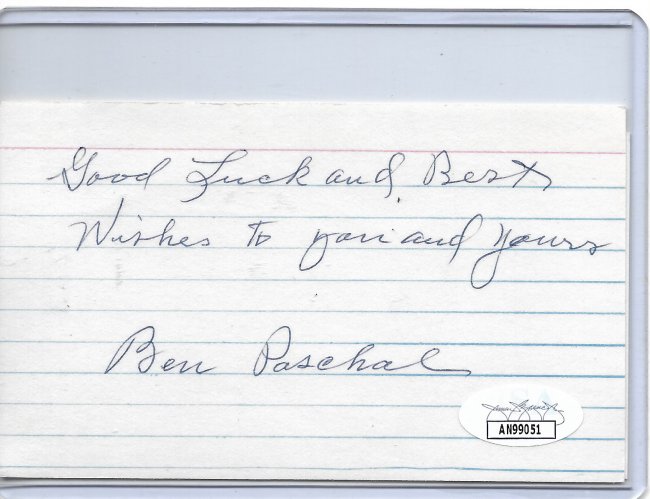 Good Luck and Best
Wishes to you and yours
Ben Paschal
AN99051